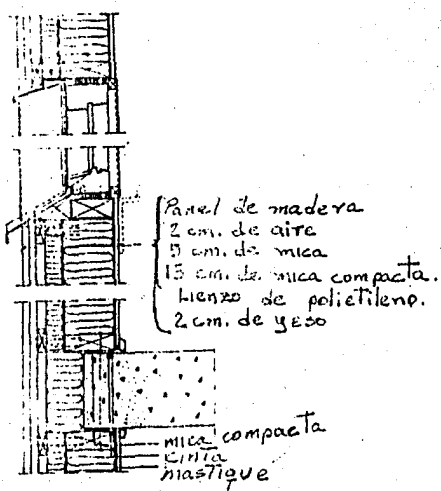 Panel de madera
2 cm. de aire
5 cm. de mica
15 cm. de mica compacta.
Lienzo de polietileno.
2 cm. de yeso
mica compacta
cinta
mastique